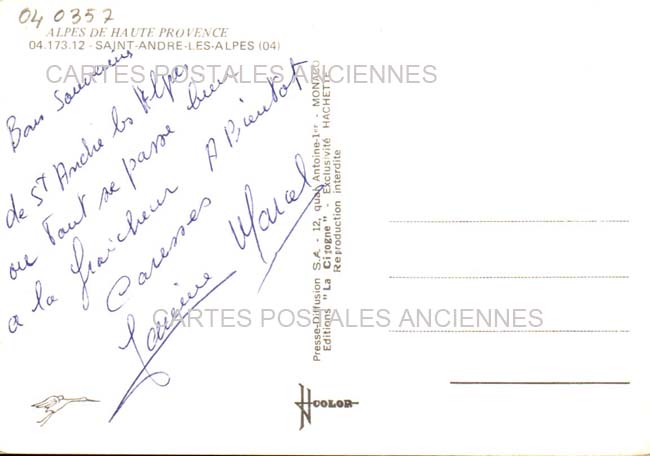 04 0357
ALPES DE HAUTE PROVENCE
04.173.12 - SAINT-ANDRE-LES-ALPES (04)
CARTES POSTALES ANCIENNES
Bons Souvenirs
de St André les Alpes
ou tout se passe bien
a la fraicheur A Bientot
Caresses
Marcel
CARTES POSTALES ANCIENNES
Presse-Diffusion S.A. - 12, quai Antoine-1er - MONACO
Editions "La Cigogne" - Exclusivité HACHETTE
Reproduction interdite
COLOR